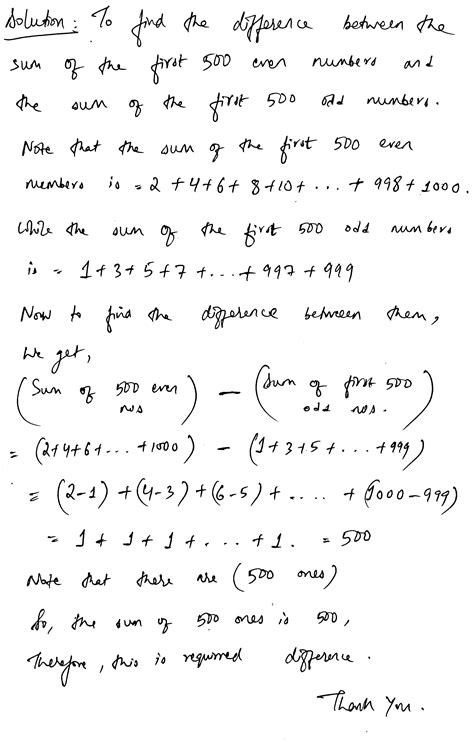 Solution: To find the difference between the
sum of the first 500 even numbers and
the sum of the first 500 odd numbers.
Note that the sum of the first 500 even
numbers is = 2 + 4 + 6 + 8 + 10 + ... + 998 + 1000.
While the sum of the first 500 odd numbers
is = 1 + 3 + 5 + 7 + ... + 997 + 999
Now to find the difference between them,
We get,
(Sum of 500 even nos) − (Sum of first 500 odd nos.)
= (2+4+6+...+1000) − (1+3+5+...+999)
= (2-1) + (4-3) + (6-5) + .... + (1000-999)
= 1 + 1 + 1 + ... + 1. = 500
Note that there are (500 ones)
So, the sum of 500 ones is 500,
Therefore, this is required difference.
Thank You.